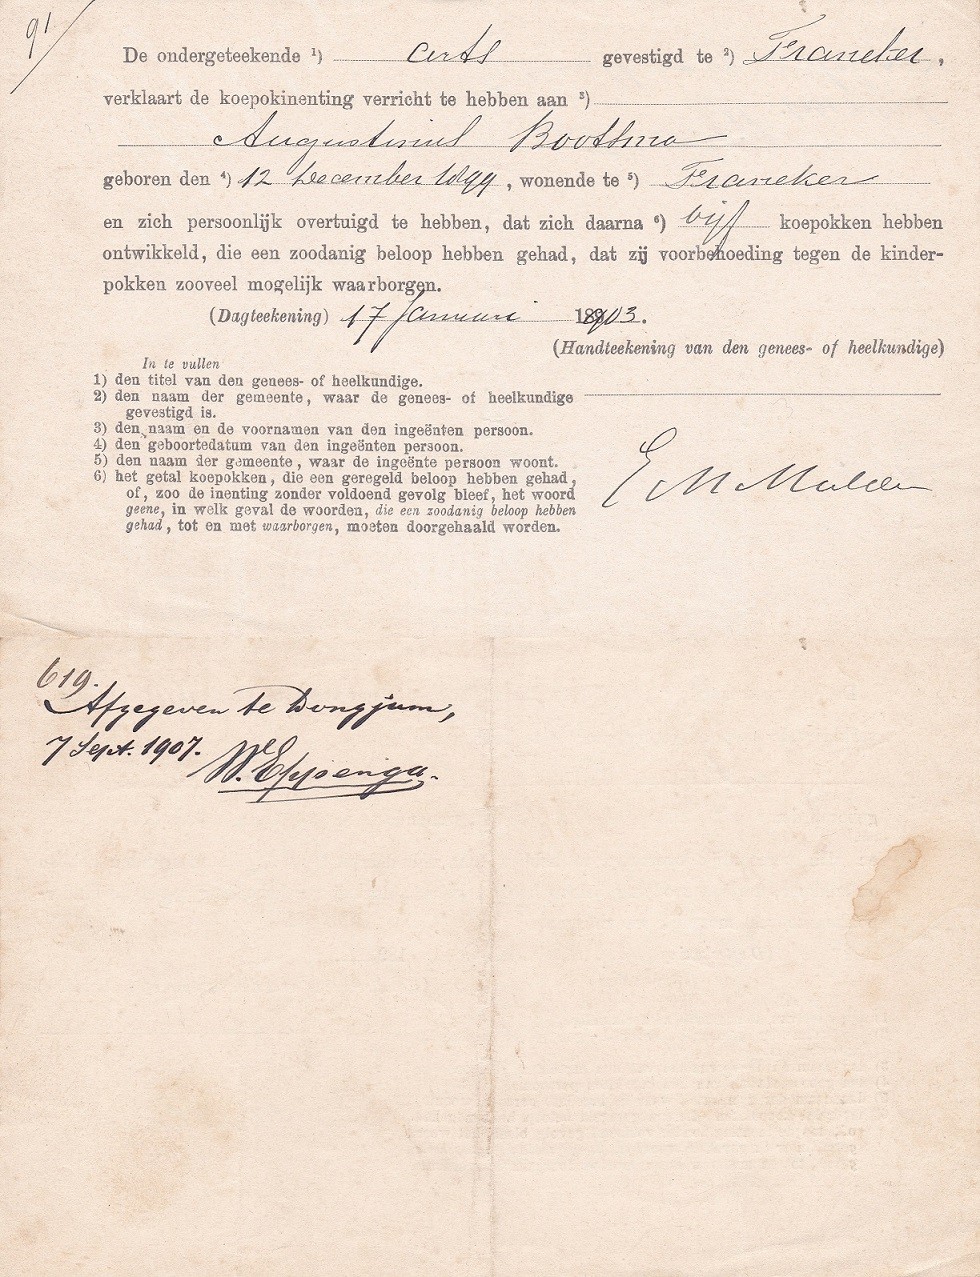 91
De ondergeteekende ¹) arts gevestigd te ²) Franeker,
verklaart de koepokinenting verricht te hebben aan ³)
Augustinus Bootsma
geboren den ⁴) 12 December 1899, wonende te ⁵) Franeker
en zich persoonlijk overtuigd te hebben, dat zich daarna ⁶) vijf koepokken hebben
ontwikkeld, die een zoodanig beloop hebben gehad, dat zij voorbehoeding tegen de kinder-
pokken zooveel mogelijk waarborgen.
(Dagteekening) 17 Januari 1903.
(Handteekening van den genees- of heelkundige)
In te vullen
1) den titel van den genees- of heelkundige.
2) den naam der gemeente, waar de genees- of heelkundige
gevestigd is.
3) den naam en de voornamen van den ingeënten persoon.
4) den geboortedatum van den ingeënten persoon.
5) den naam der gemeente, waar de ingeënte persoon woont.
6) het getal koepokken, die een geregeld beloop hebben gehad,
of, zoo de inenting zonder voldoend gevolg bleef, het woord
geene, in welk geval de woorden, die een zoodanig beloop hebben
gehad, tot en met waarborgen, moeten doorgehaald worden.
E M Mulder
619.
Afgegeven te Dongjum,
7 Sept. 1907.
W. Eppenga.